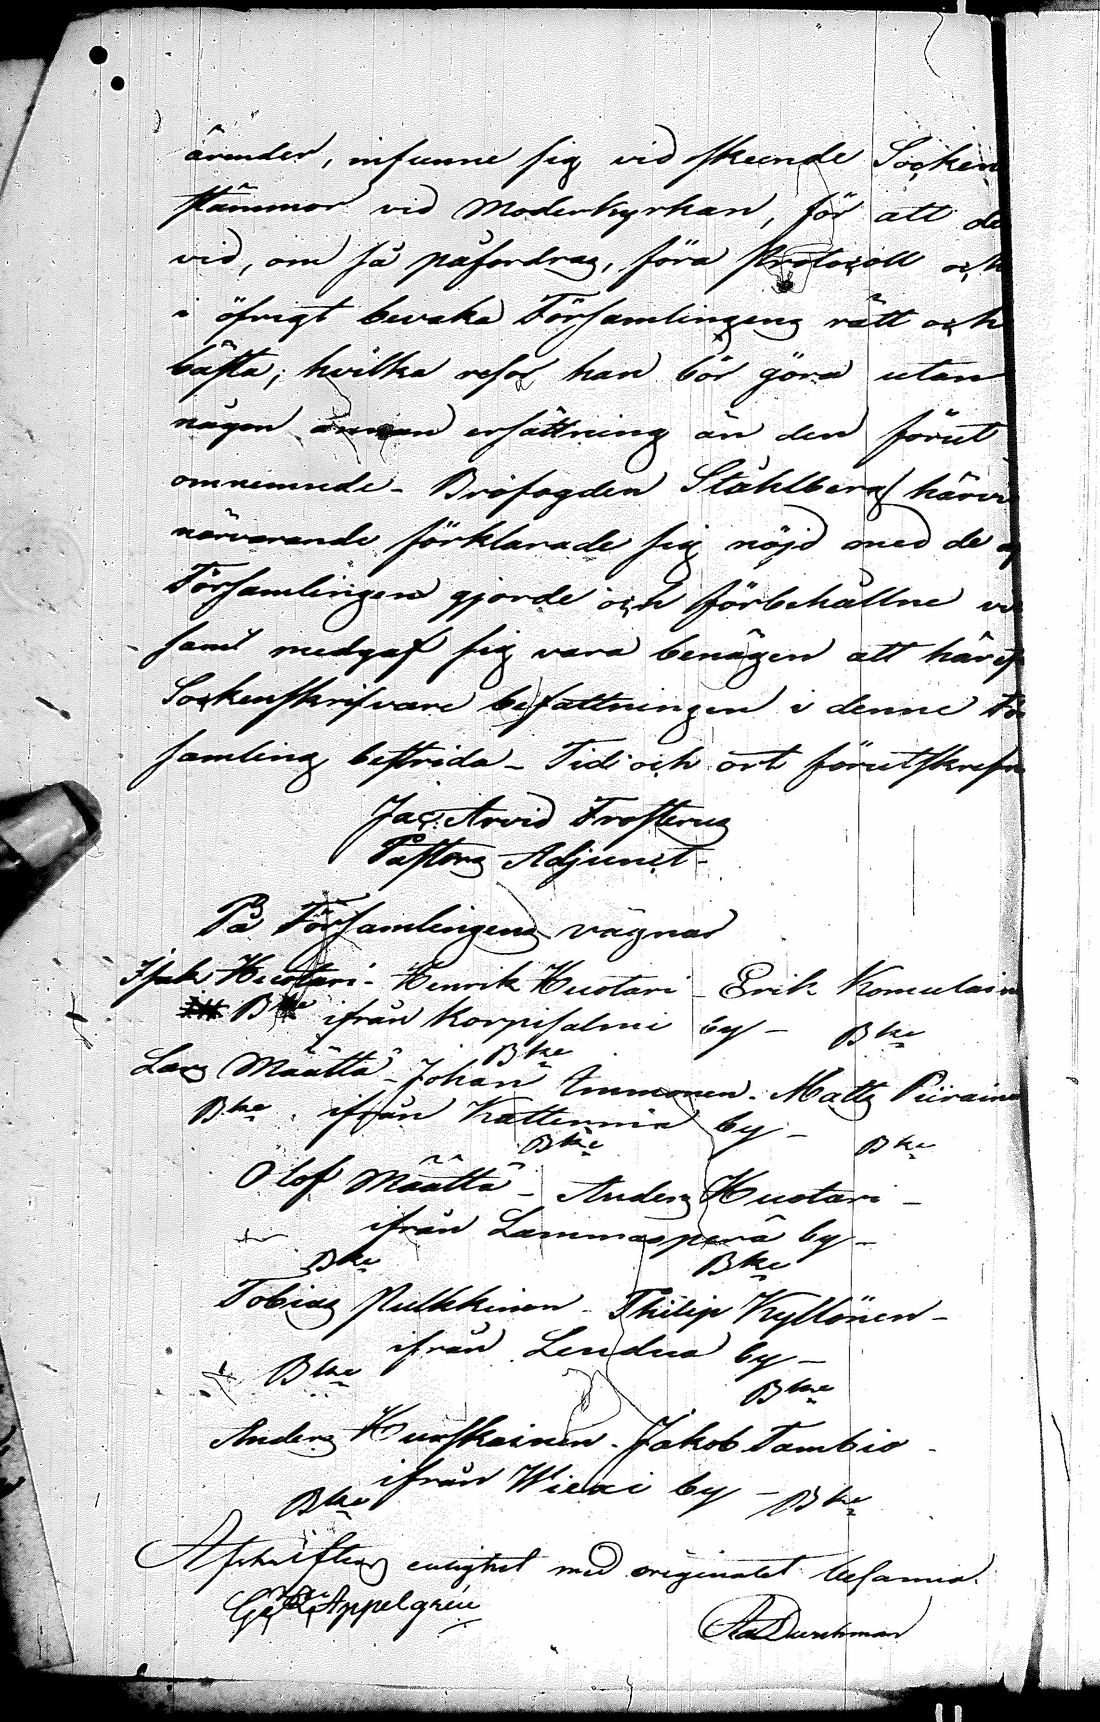 ärender, infunne sig vid skeende Socken
stämmor vid Moderkyrkan, för att de
vid, om så påfordras, föra Protocoll och
i öfrigt bevaka Församlingens rätt och
bästa; hvilka resor han bör göra utan
någon annan ersättning än den förut
omnemnde - Brofogden Ståhlberg härv
närvarande förklarade sig nöjd med de a
Församlingen gjorde och förbehållne vi
samt medgaf sig vara benägen att häref
Sockenskrifvare befattningen i denne För
samling bestrida - Tid och ort förutskrefne
Jac. Arvid Frosterus
Pastors Adjunct -
På Församlingens vägnar
Isak Huotari - Henrik Huotari - Erik Komulain
Bke ifrån Korpisalmi by - Bke
Bke
Lars Määttä - Johan Immonen - Matts Piiraine
Bke ifrån Kattermia by -
Bke Bke
Olof Määttä - Anders Huotari -
ifrån Lammasperä by -
Bke Bke
Tobias Pulkkinen - Philip Kyllönen -
ifrån Lendua by -
Bke Bke
Anders Kurskainen - Jakob Tambio -
ifrån Wiexi by - Bke
Bke
Afskriftens enlighet med originalet besanna.
Appelgrén
Durchman